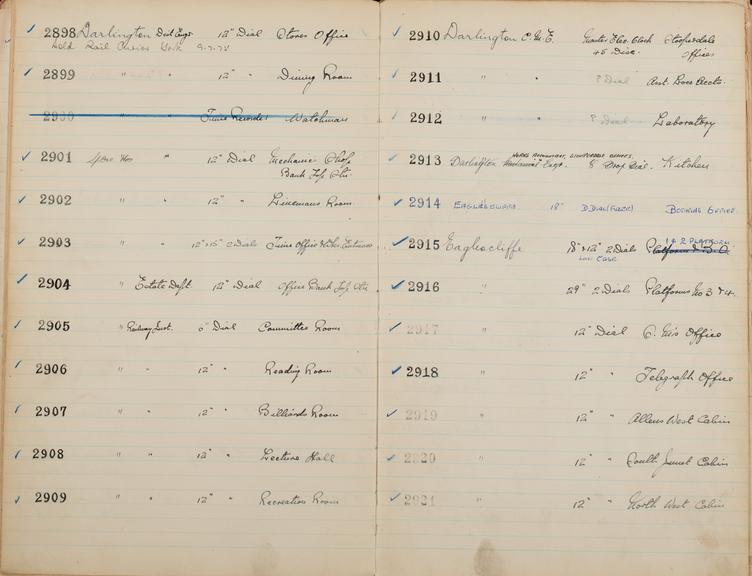 2898 Darlington Dist Engs 12" Dial Stores Office
Sold Rail Chrics York
2899 " " 12" " Dining Room
2900 Time Recorder Watchman
2901 " 12" Dial Mechanic Shop
Bank Top Stn.
2902 " " 12" " Linemans Room
2903 " " 12" + 15" 2 Dials Time Office Entrance
2904 " Estate Dept 12" Dial Office Bank Top Stn
2905 " Railway Inst. 6" Dial Committee Room
2906 " " 12" " Reading Room
2907 " " 12" " Billiards Room
2908 " " 12" " Lecture Hall
2909 " " 12" " Recreation Room
2910 Darlington C.M.E. Master Elec. Clock Stooperdale
45 Disc. Offices
2911 " " ? Dial Asst. Accts.
2912 " " ? Dial Laboratory
WORKS STOOPERDALE OFFICES.
2913 Darlington 8" Drop Dial. Kitchen
2914 EAGLESCLIFFE 18" D.DIAL BOOKING OFFICE
1 & 2 PLATFORM
2915 Eaglescliffe 18" + 12" 2 Dials Platform & B.O
LOW CASE
2916 " 29" 2 Dials Platforms No 3 & 4.
2917 " 12" Dial G. M's Office
2918 " 12" " Telegraph Office
2919 " 12" " Allens West Cabin
2920 " 12" " South Junct Cabin
2921 " 12" " North West Cabin